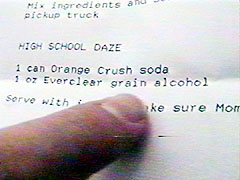 Mix ingredients and
pickup truck
HIGH SCHOOL DAZE
1 can Orange Crush soda
1 oz Everclear grain alcohol
Serve with
sure Mom